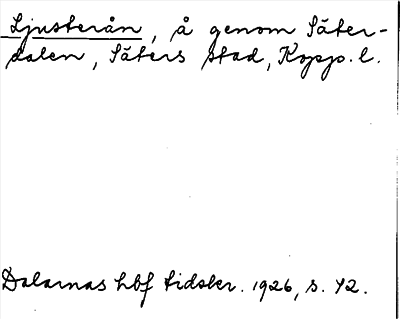 Ljusterån, å genom Säter-
dalen, Säters stad, Kopp. l.
Dalarnas hbf tidskr. 1926, s. 42.